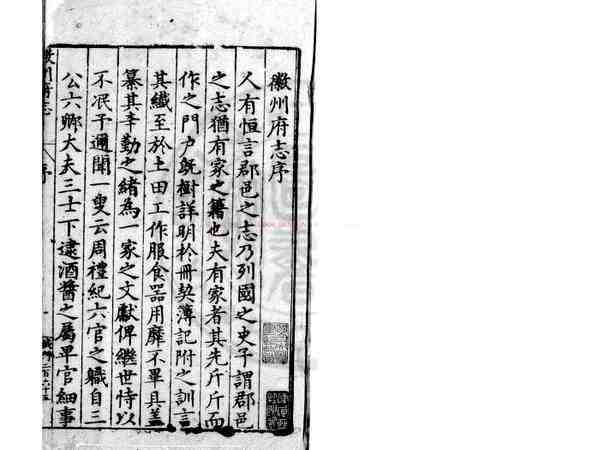 徽州府志序
人有恒言郡邑之志乃列國之史予謂郡邑
之志猶有家之籍也夫有家者其先斤斤而
作之門户既樹詳明於冊契簿記附之訓言
其纖至於土田工作服食器用靡不畢具蓋
纂其李勤之緒為一家之文獻俾繼世恃以
不泯予邇聞一叟云周禮紀六官之職自三
公六卿大夫三士下逮酒醬之屬早官細事
徽州府志
序